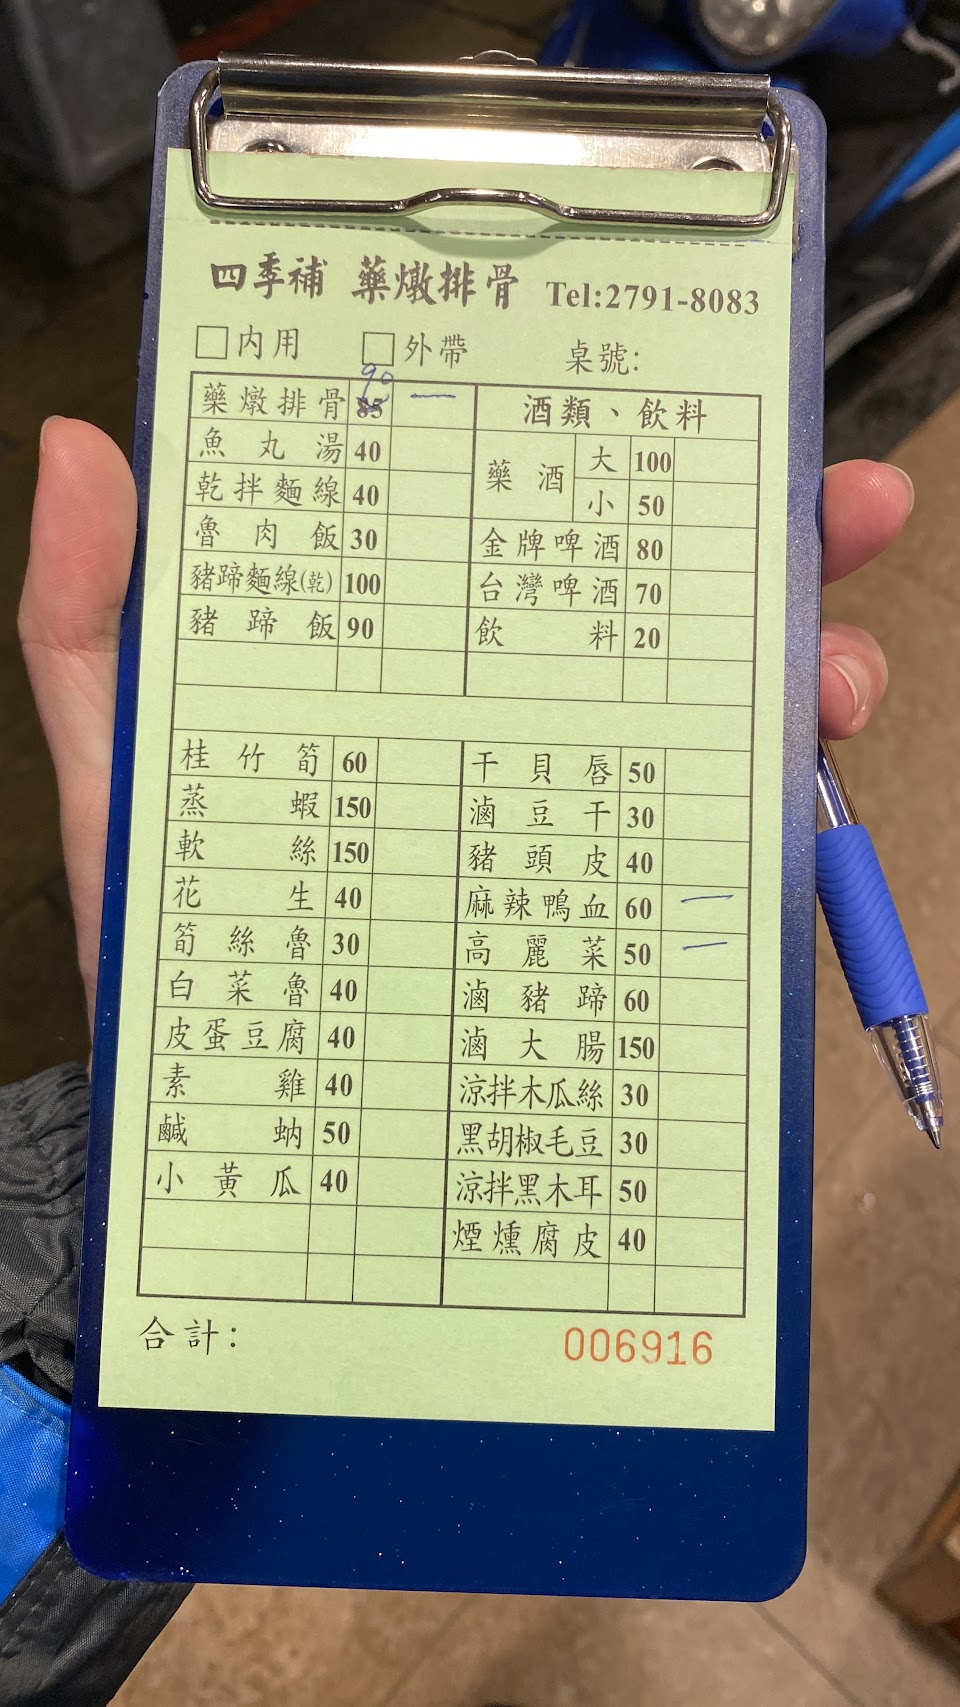 四季補 藥燉排骨 Tel:2791-8083
□內用 □外帶 桌號:
藥燉排骨 85 90 一
魚丸湯 40
乾拌麵線 40
魯肉飯 30
豬蹄麵線(乾) 100
豬蹄飯 90
酒類、飲料
藥酒 大 100
小 50
金牌啤酒 80
台灣啤酒 70
飲料 20
桂竹筍 60
蒸蝦 150
軟絲 150
花生 40
筍絲魯 30
白菜魯 40
皮蛋豆腐 40
素雞 40
鹹蚋 50
小黃瓜 40
干貝唇 50
滷豆干 30
豬頭皮 40
麻辣鴨血 60 一
高麗菜 50 一
滷豬蹄 60
滷大腸 150
涼拌木瓜絲 30
黑胡椒毛豆 30
涼拌黑木耳 50
煙燻腐皮 40
合計:
006916